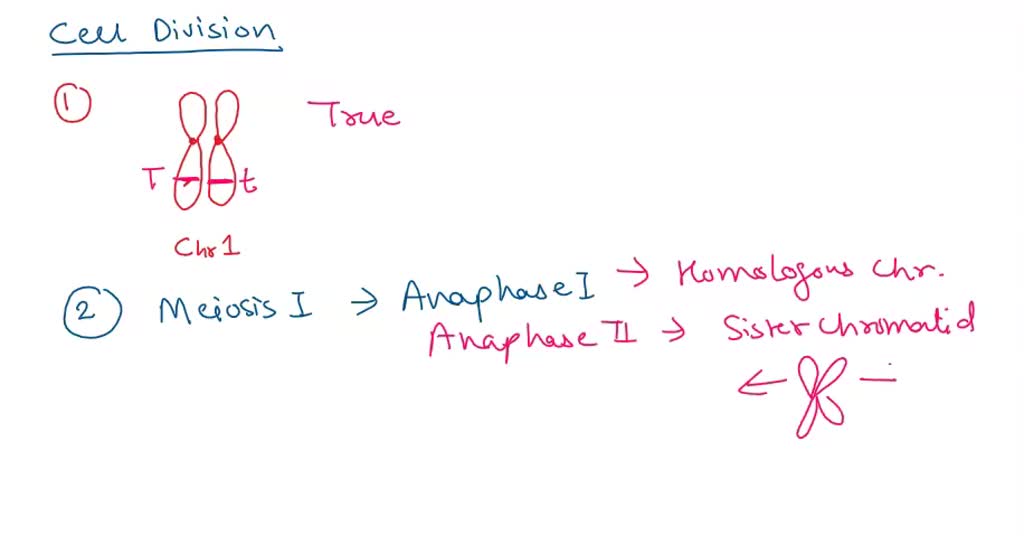 Cell Division
① True
T t
Chr 1
② Meiosis I → Anaphase I → Homologous Chr.
Anaphase II → Sister chromatid